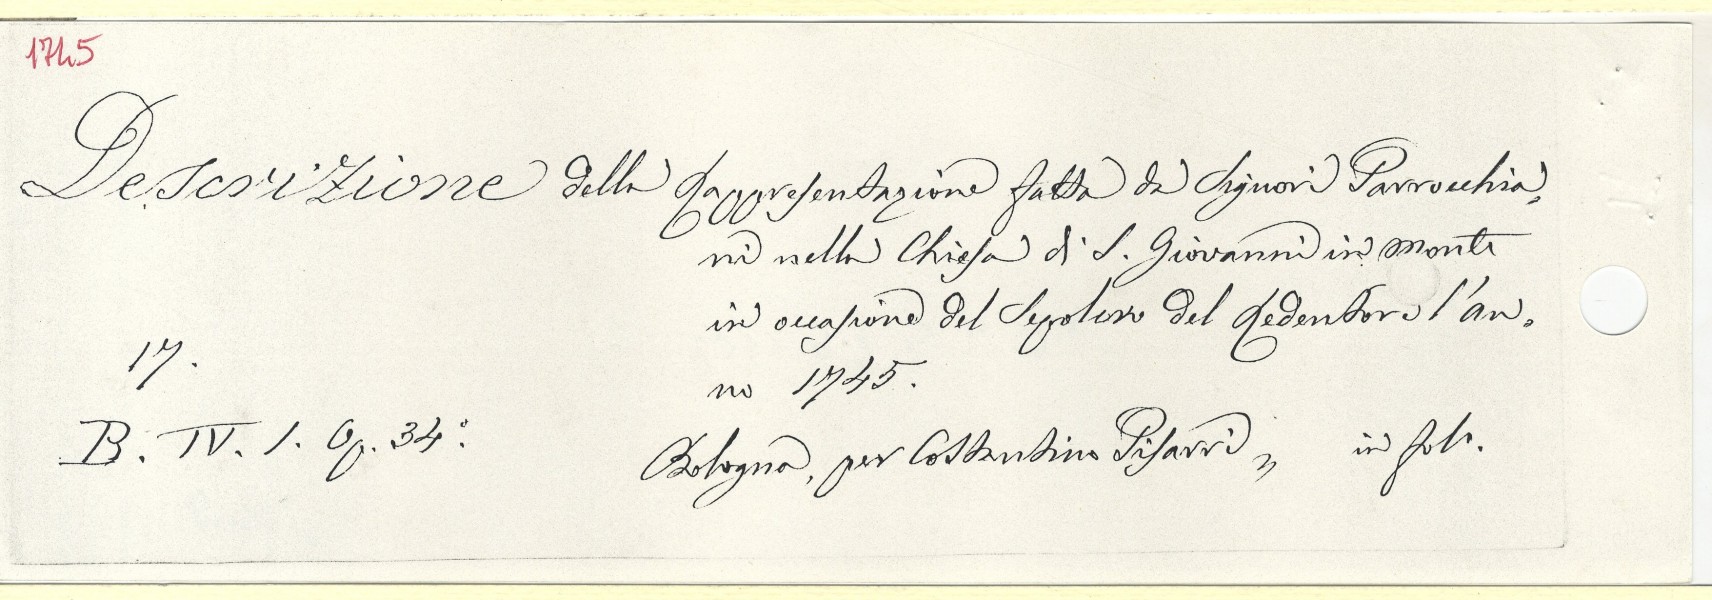 1745
Descrizione della Rappresentazione fatta da Signori Parrocchia,
ni nella Chiesa di S. Giovanni in monte
in occasione del Sepolcro del Redentore l'an,
no 1745.
17.
B. IV. 1. Op. 34:
Bologna, per Costantino Pisarri „ in fol.